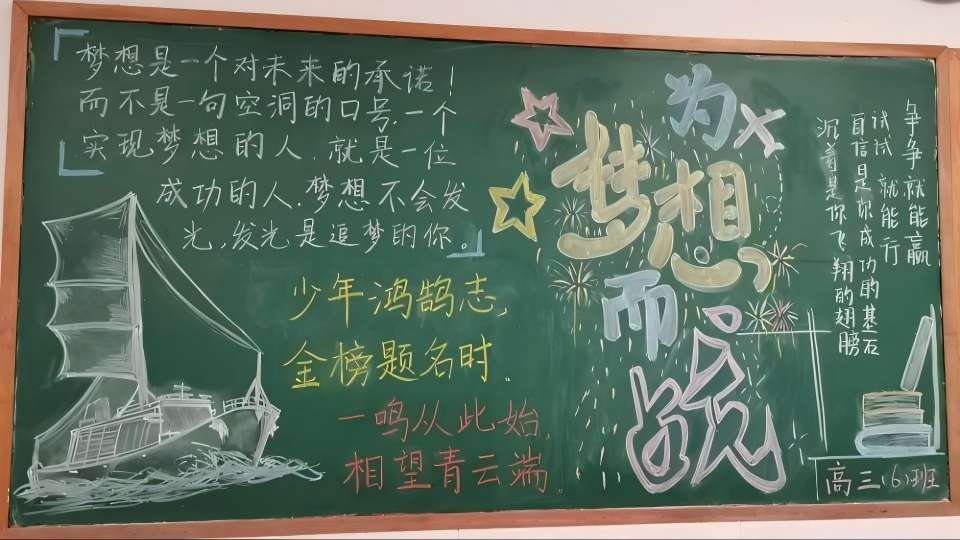 梦想是一个对未来的承诺!
而不是一句空洞的口号,一个
实现梦想的人.就是一位
成功的人.梦想不会发
光,发光是追梦的你。
少年鸿鹄志,
金榜题名时.
一鸣从此始,
相望青云端.
为
梦想,
而
战
争争 就能赢
试试 就能行
自信是你成功的基石
沉着是你飞翔的翅膀
高三(6)班